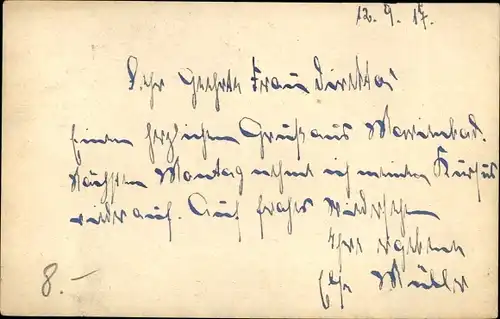 12. 9. 17.
Sehr Geehrte Frau Direktor
Einen herzlichen Gruß aus Marienbad.
Nächsten Montag nehme ich meinen Kursus
wieder auf. Auf frohes Wiedersehen
Ihre ergebene
Müller
8.–